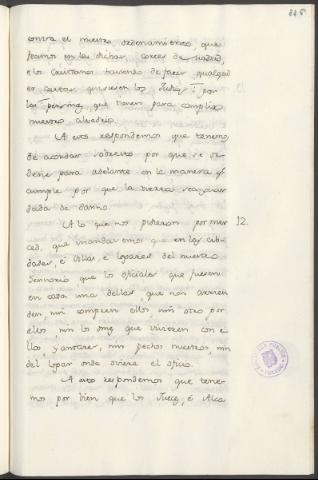 225
contra el nuestro ordenamiento que
fecimos en las dichas cortes de Madrid,
e los cavan tomando de facer qualquier
es cartas quisieren los
las que tienen para complir
nuestro alvedrio.
A esto respondemos que tenemos
de acordar sobrello por que se or
dene para adelante en la manera q̃
cumple por que la tierra sea guar
dada de danno.
A lo que nos pidieron por mer
ced, que mandasemos que en las cib-
dades, e villas, e logares del nuestro
Sennorio que los oficiales que fueren
en cada una dellas, que non arrien
den nin compren ellos nin otro por
ellos nin los omes que vivieren con e
llos, y anterer, nin pechos nuestros, nin
del logar onde oviere el oficio.
A esto respondemos que tene-
mos por bien que los Juezes, é Alca
12.